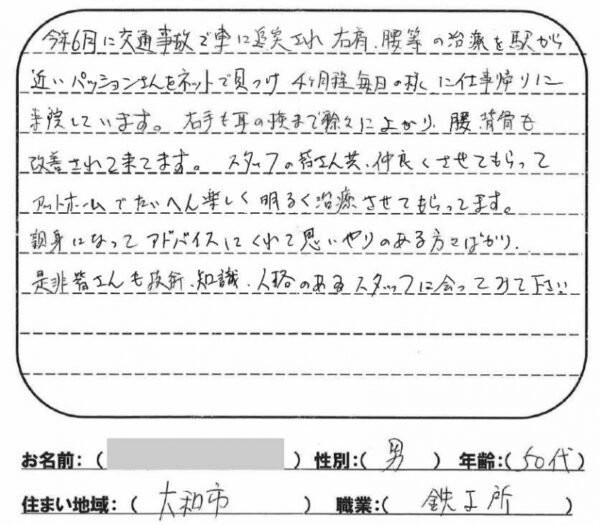 今年6月に交通事故で車に追突され右肩、腰等の治療を駅から
近いパッションさんをネットで見つけ 4ヶ月程毎日の様に仕事帰りに
来院しています。 右手も耳の横まで徐々に上がり、腰、背骨も
改善されて来てます。 スタッフの皆さん共、仲良くさせてもらって
アットホームでたいへん楽しく明るく治療させてもらってます。
親身になってアドバイスしてくれて思いやりのある方々ばかり、
是非皆さんも技術、知識、人格のあるスタッフに会ってみて下さい
お名前：（ ） 性別：（ 男 ） 年齢：（ 50代 ）
住まい地域：（ 大和市 ） 職業：（ 鉄工所 ）